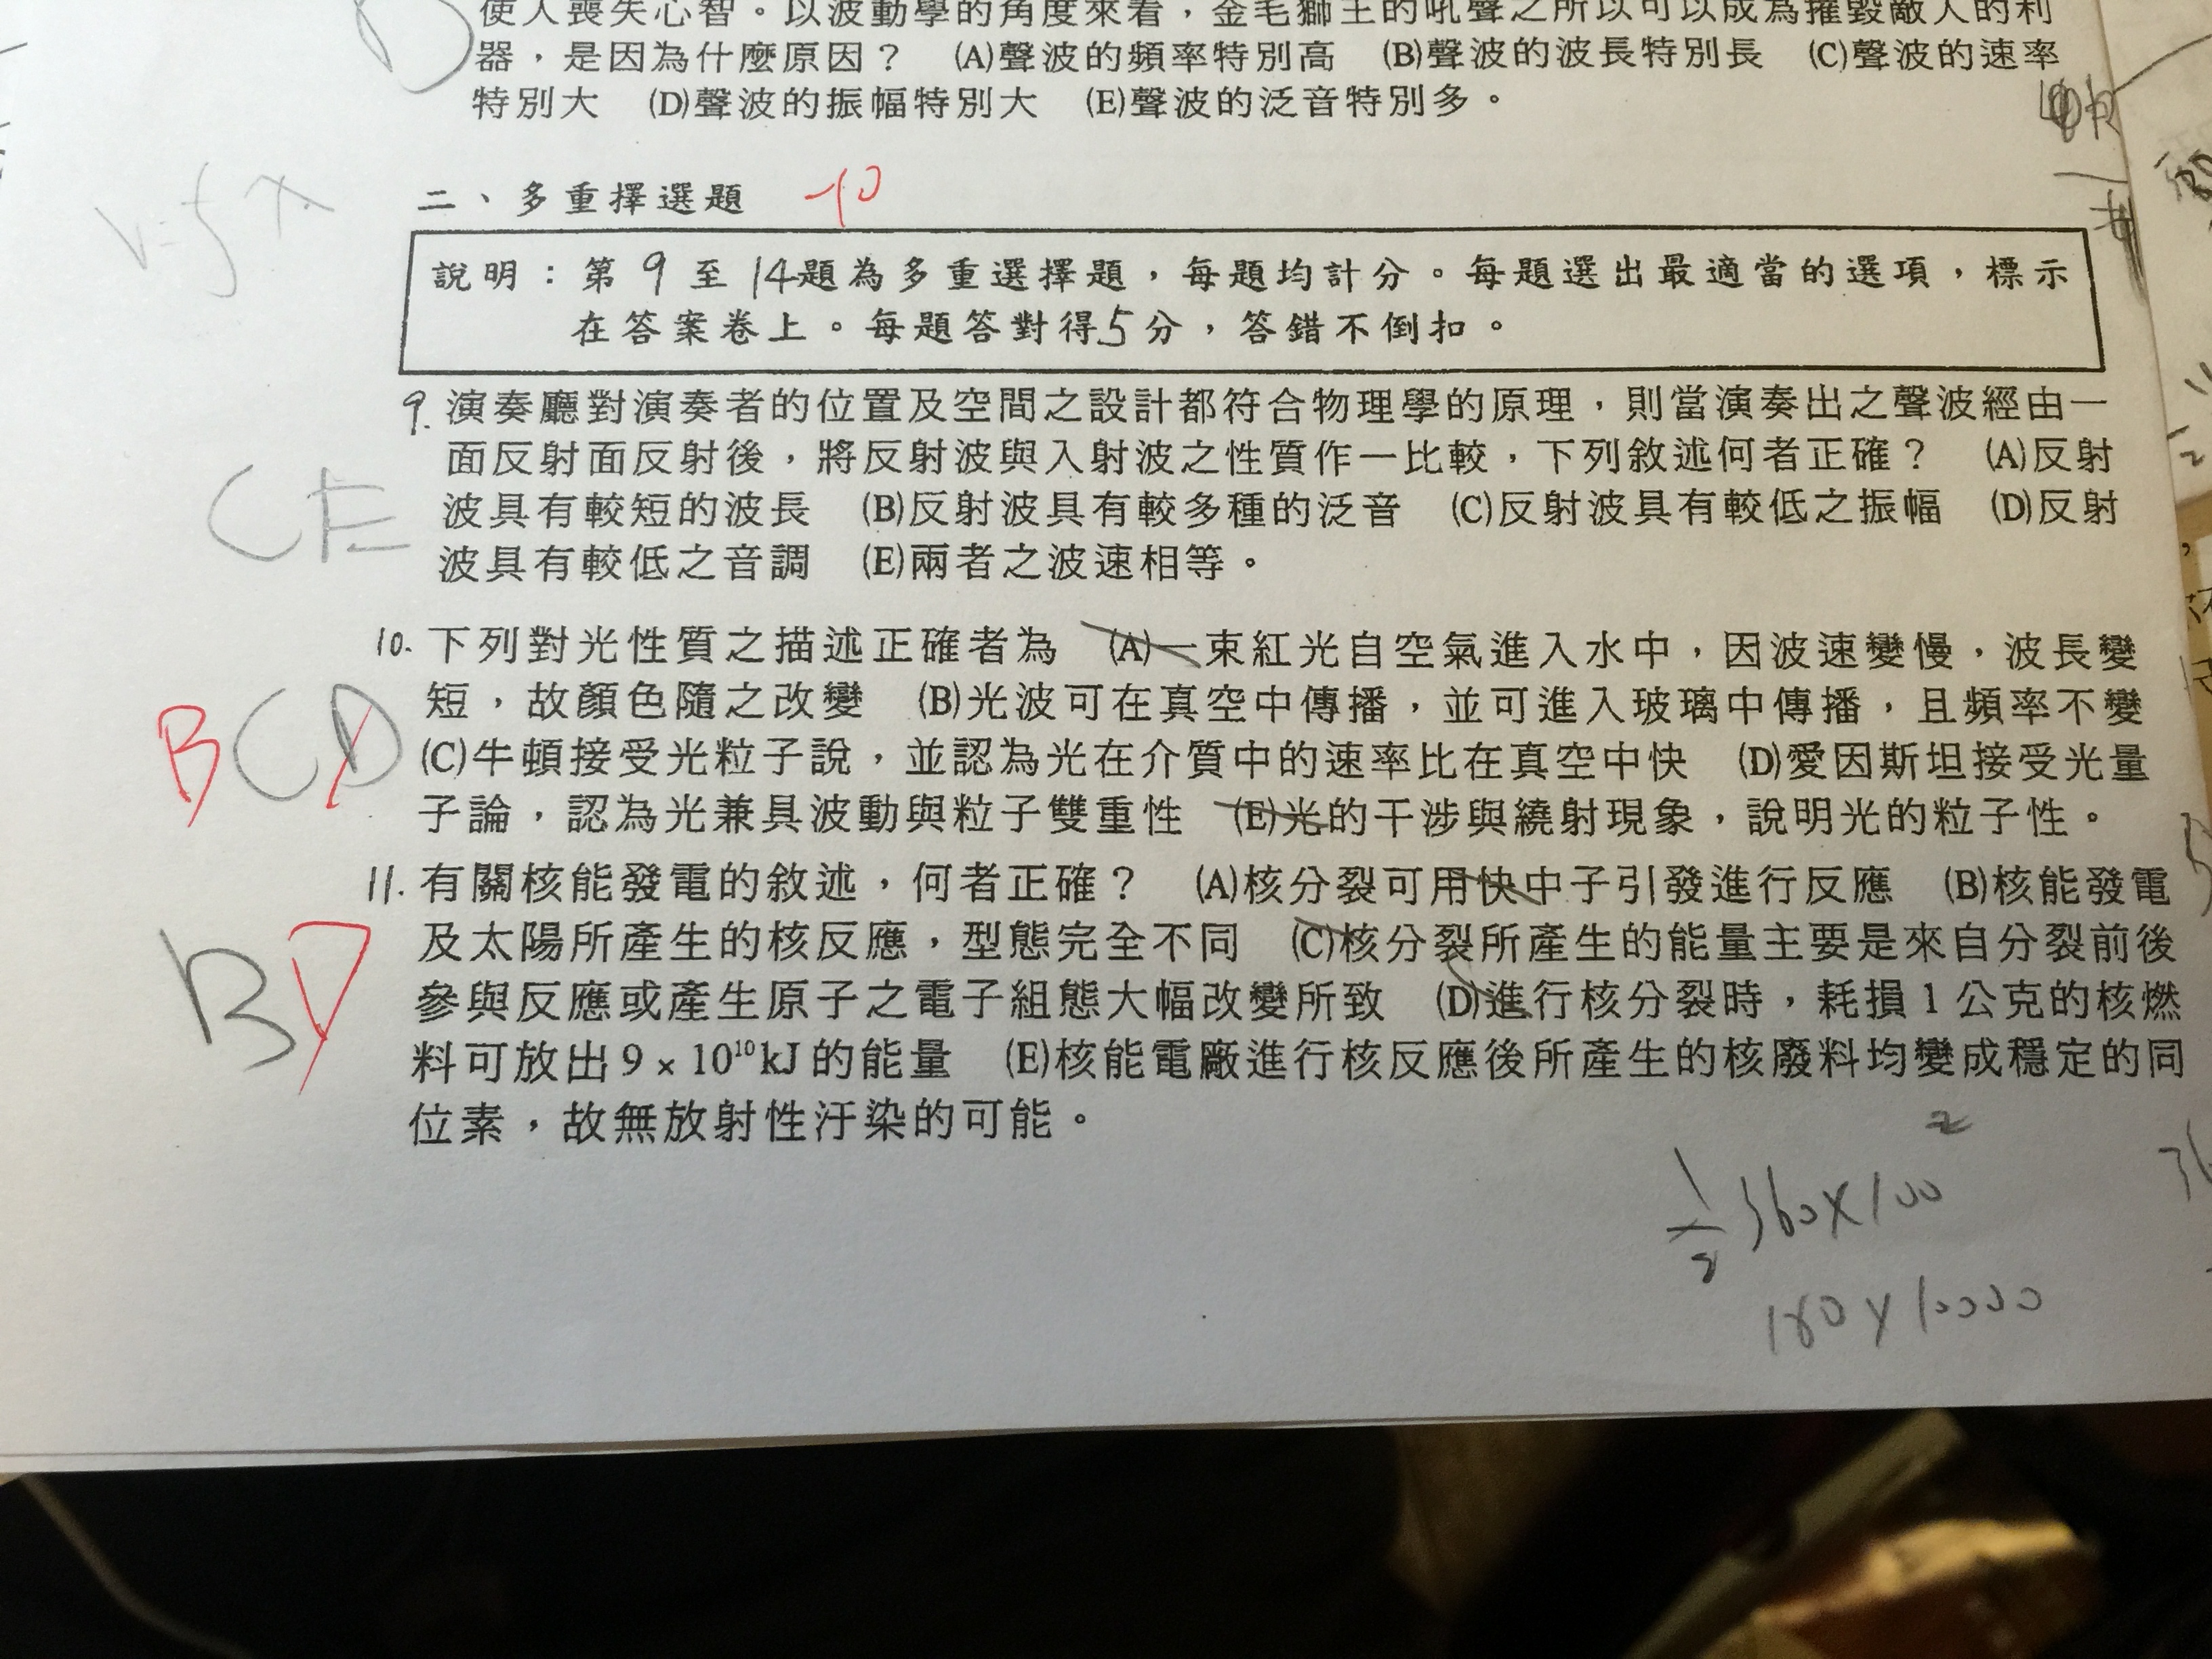 使人喪失心智。以波動學的角度來看，金毛獅王的吼聲之所以可以成為摧毀敵人的利
器，是因為什麼原因？ (A)聲波的頻率特別高 (B)聲波的波長特別長 (C)聲波的速率
特別大 (D)聲波的振幅特別大 (E)聲波的泛音特別多。
D
v=fλ
二、多重擇選題 -10
說明：第9至14題為多重選擇題，每題均計分。每題選出最適當的選項，標示
在答案卷上。每題答對得5分，答錯不倒扣。
9. 演奏廳對演奏者的位置及空間之設計都符合物理學的原理，則當演奏出之聲波經由一
面反射面反射後，將反射波與入射波之性質作一比較，下列敘述何者正確？ (A)反射
波具有較短的波長 (B)反射波具有較多種的泛音 (C)反射波具有較低之振幅 (D)反射
波具有較低之音調 (E)兩者之波速相等。
CE
10. 下列對光性質之描述正確者為 (A)一束紅光自空氣進入水中，因波速變慢，波長變
短，故顏色隨之改變 (B)光波可在真空中傳播，並可進入玻璃中傳播，且頻率不變
(C)牛頓接受光粒子說，並認為光在介質中的速率比在真空中快 (D)愛因斯坦接受光量
子論，認為光兼具波動與粒子雙重性 (E)光的干涉與繞射現象，說明光的粒子性。
BCD
11. 有關核能發電的敘述，何者正確？ (A)核分裂可用快中子引發進行反應 (B)核能發電
及太陽所產生的核反應，型態完全不同 (C)核分裂所產生的能量主要是來自分裂前後
參與反應或產生原子之電子組態大幅改變所致 (D)進行核分裂時，耗損1公克的核燃
料可放出9×10¹⁰kJ的能量 (E)核能電廠進行核反應後所產生的核廢料均變成穩定的同
位素，故無放射性汙染的可能。
BD
½ 360×100²
180×10000